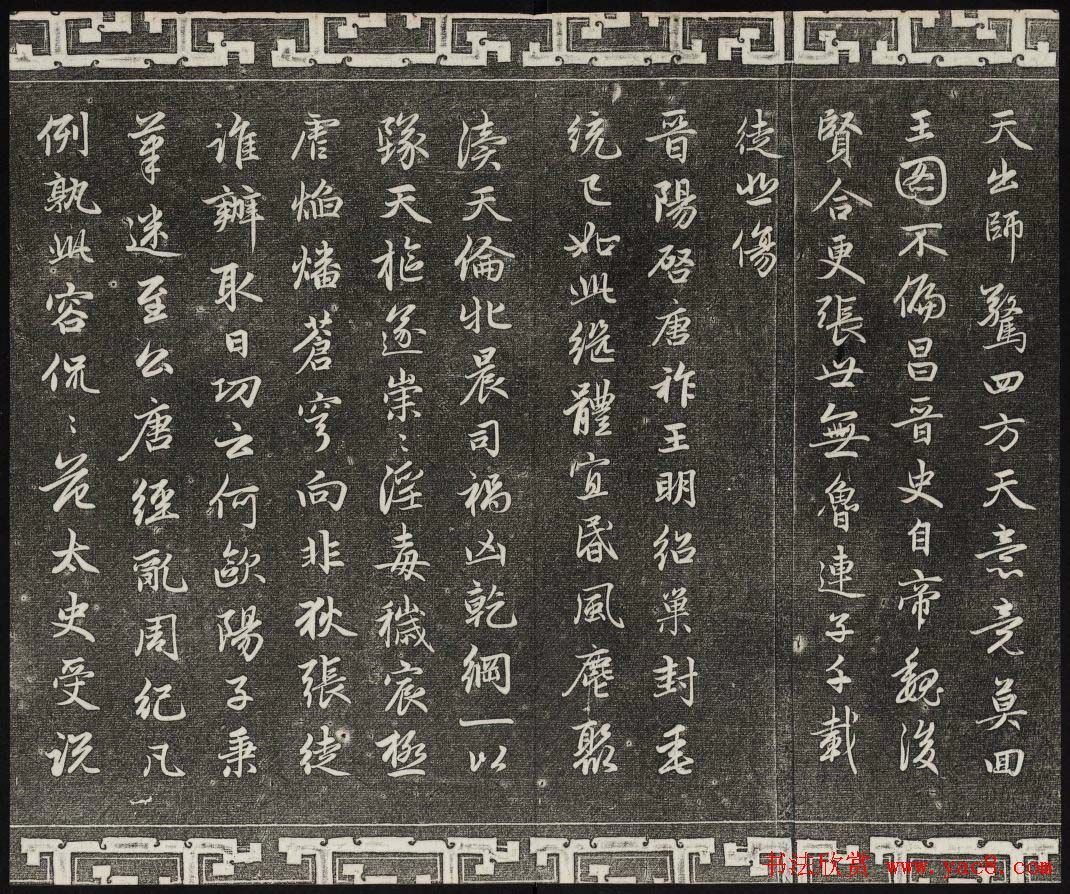 天出師驚四方天意竟莫回
王圖不偏昌晉史自帝魏後
賢合更張世無魯連子千載
徒悲傷
晉陽啓唐祚王明紹巢封垂
統已如此繼體宜昏風麀聚
瀆天倫牝晨司禍凶乾綱一以
墜天樞遂崇〻淫毒穢宸極
虐焰燔蒼穹向非狄張徒
誰辦取日功云何歐陽子秉
筆迷至公唐經亂周紀凡
例孰此容侃〻范太史受說
书法欣赏 www.yac8.com